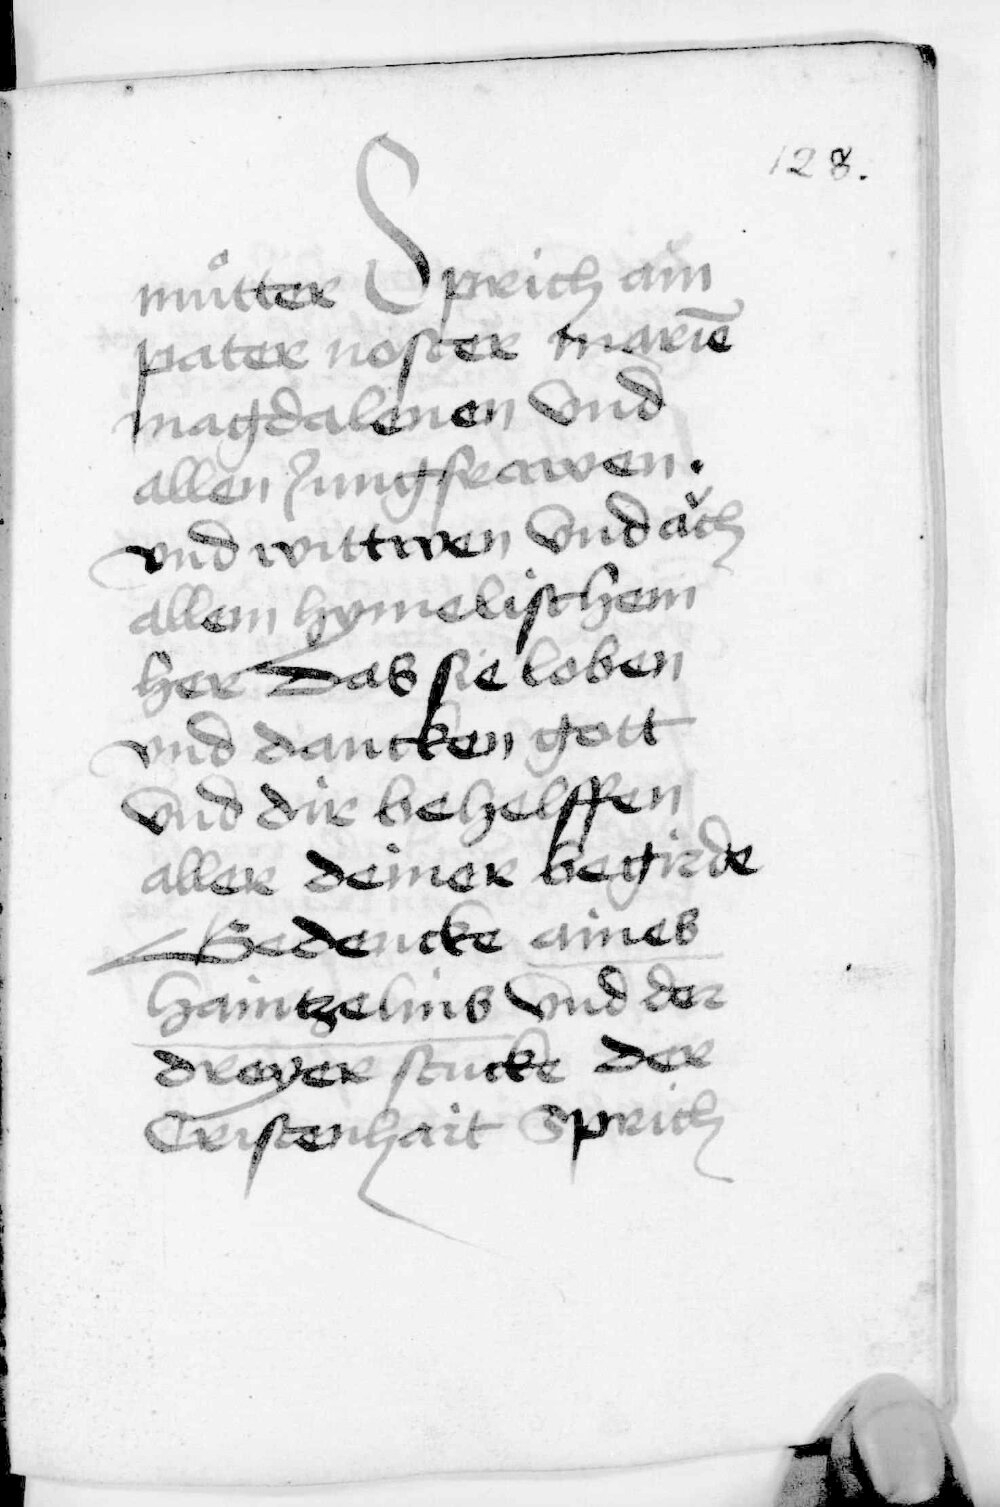 128.
můtter Sprich ain
pater noster mariē
magdalenen vnd
allen Jungfrawen.
vnd wittwen vnd aǔch
allem hymelischem
her Das sie loben
vnd dancken gott
vnd dir behelffen
aller deiner begirde
Gedencke aines
haintzelins vnd der
dreyer stucke der
Cristenhait Sprich